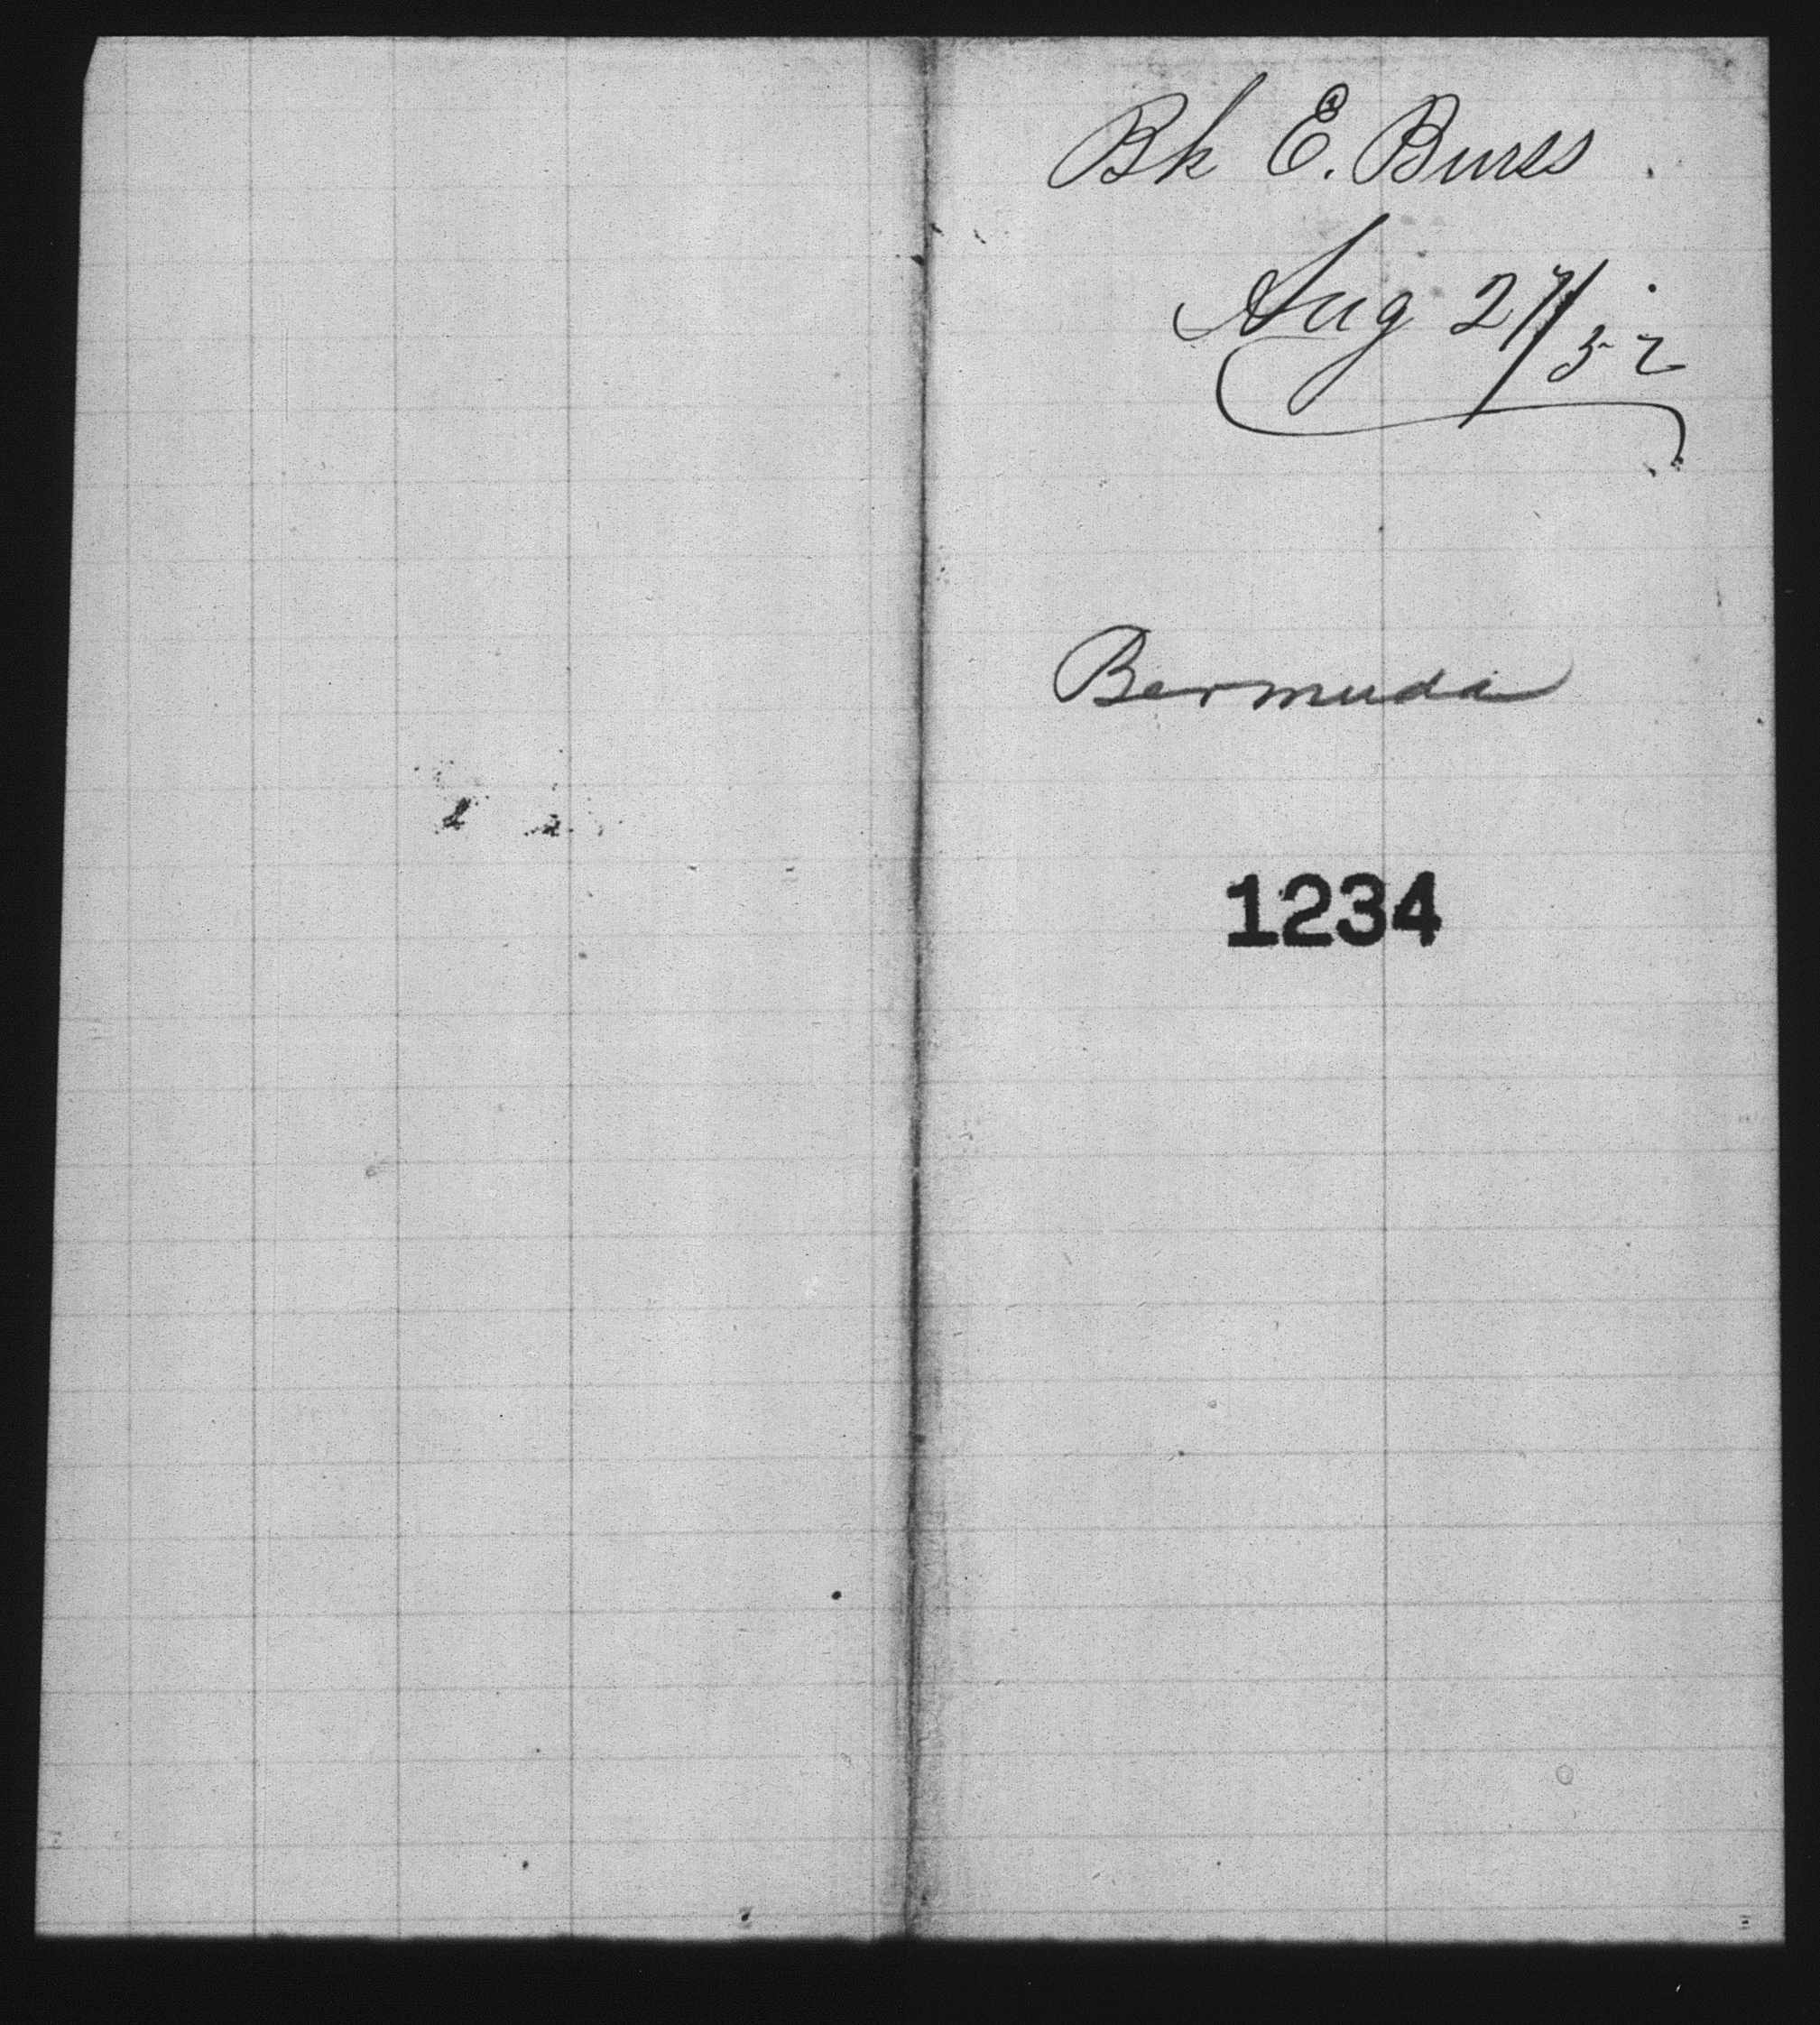 Bk E. Burss
Aug 27/52
Bermuda
1234